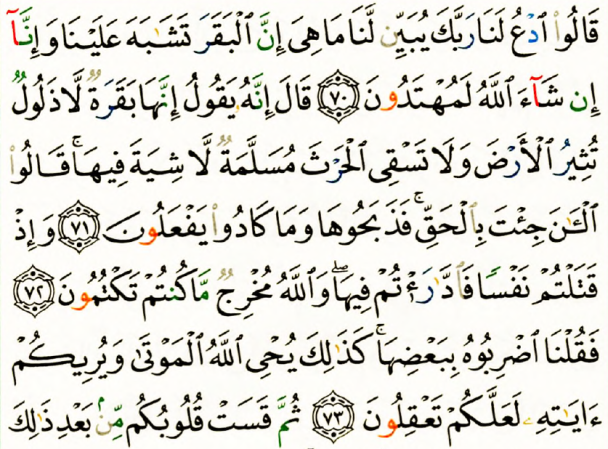 قَالُوا۟ ٱدْعُ لَنَا رَبَّكَ يُبَيِّن لَّنَا مَا هِىَ إِنَّ ٱلْبَقَرَ تَشَـٰبَهَ عَلَيْنَا وَإِنَّآ
إِن شَآءَ ٱللَّهُ لَمُهْتَدُونَ ٧٠ قَالَ إِنَّهُۥ يَقُولُ إِنَّهَا بَقَرَةٌ لَّا ذَلُولٌ
تُثِيرُ ٱلْأَرْضَ وَلَا تَسْقِى ٱلْحَرْثَ مُسَلَّمَةٌ لَّا شِيَةَ فِيهَا ۚ قَالُوا۟
ٱلْـَٔـٰنَ جِئْتَ بِٱلْحَقِّ ۚ فَذَبَحُوهَا وَمَا كَادُوا۟ يَفْعَلُونَ ٧١ وَإِذْ
قَتَلْتُمْ نَفْسًا فَٱدَّٰرَْٰٔتُمْ فِيهَا ۖ وَٱللَّهُ مُخْرِجٌ مَّا كُنتُمْ تَكْتُمُونَ ٧٢
فَقُلْنَا ٱضْرِبُوهُ بِبَعْضِهَا ۚ كَذَٰلِكَ يُحْىِ ٱللَّهُ ٱلْمَوْتَىٰ وَيُرِيكُمْ
ءَايَـٰتِهِۦ لَعَلَّكُمْ تَعْقِلُونَ ٧٣ ثُمَّ قَسَتْ قُلُوبُكُم مِّنۢ بَعْدِ ذَٰلِكَ